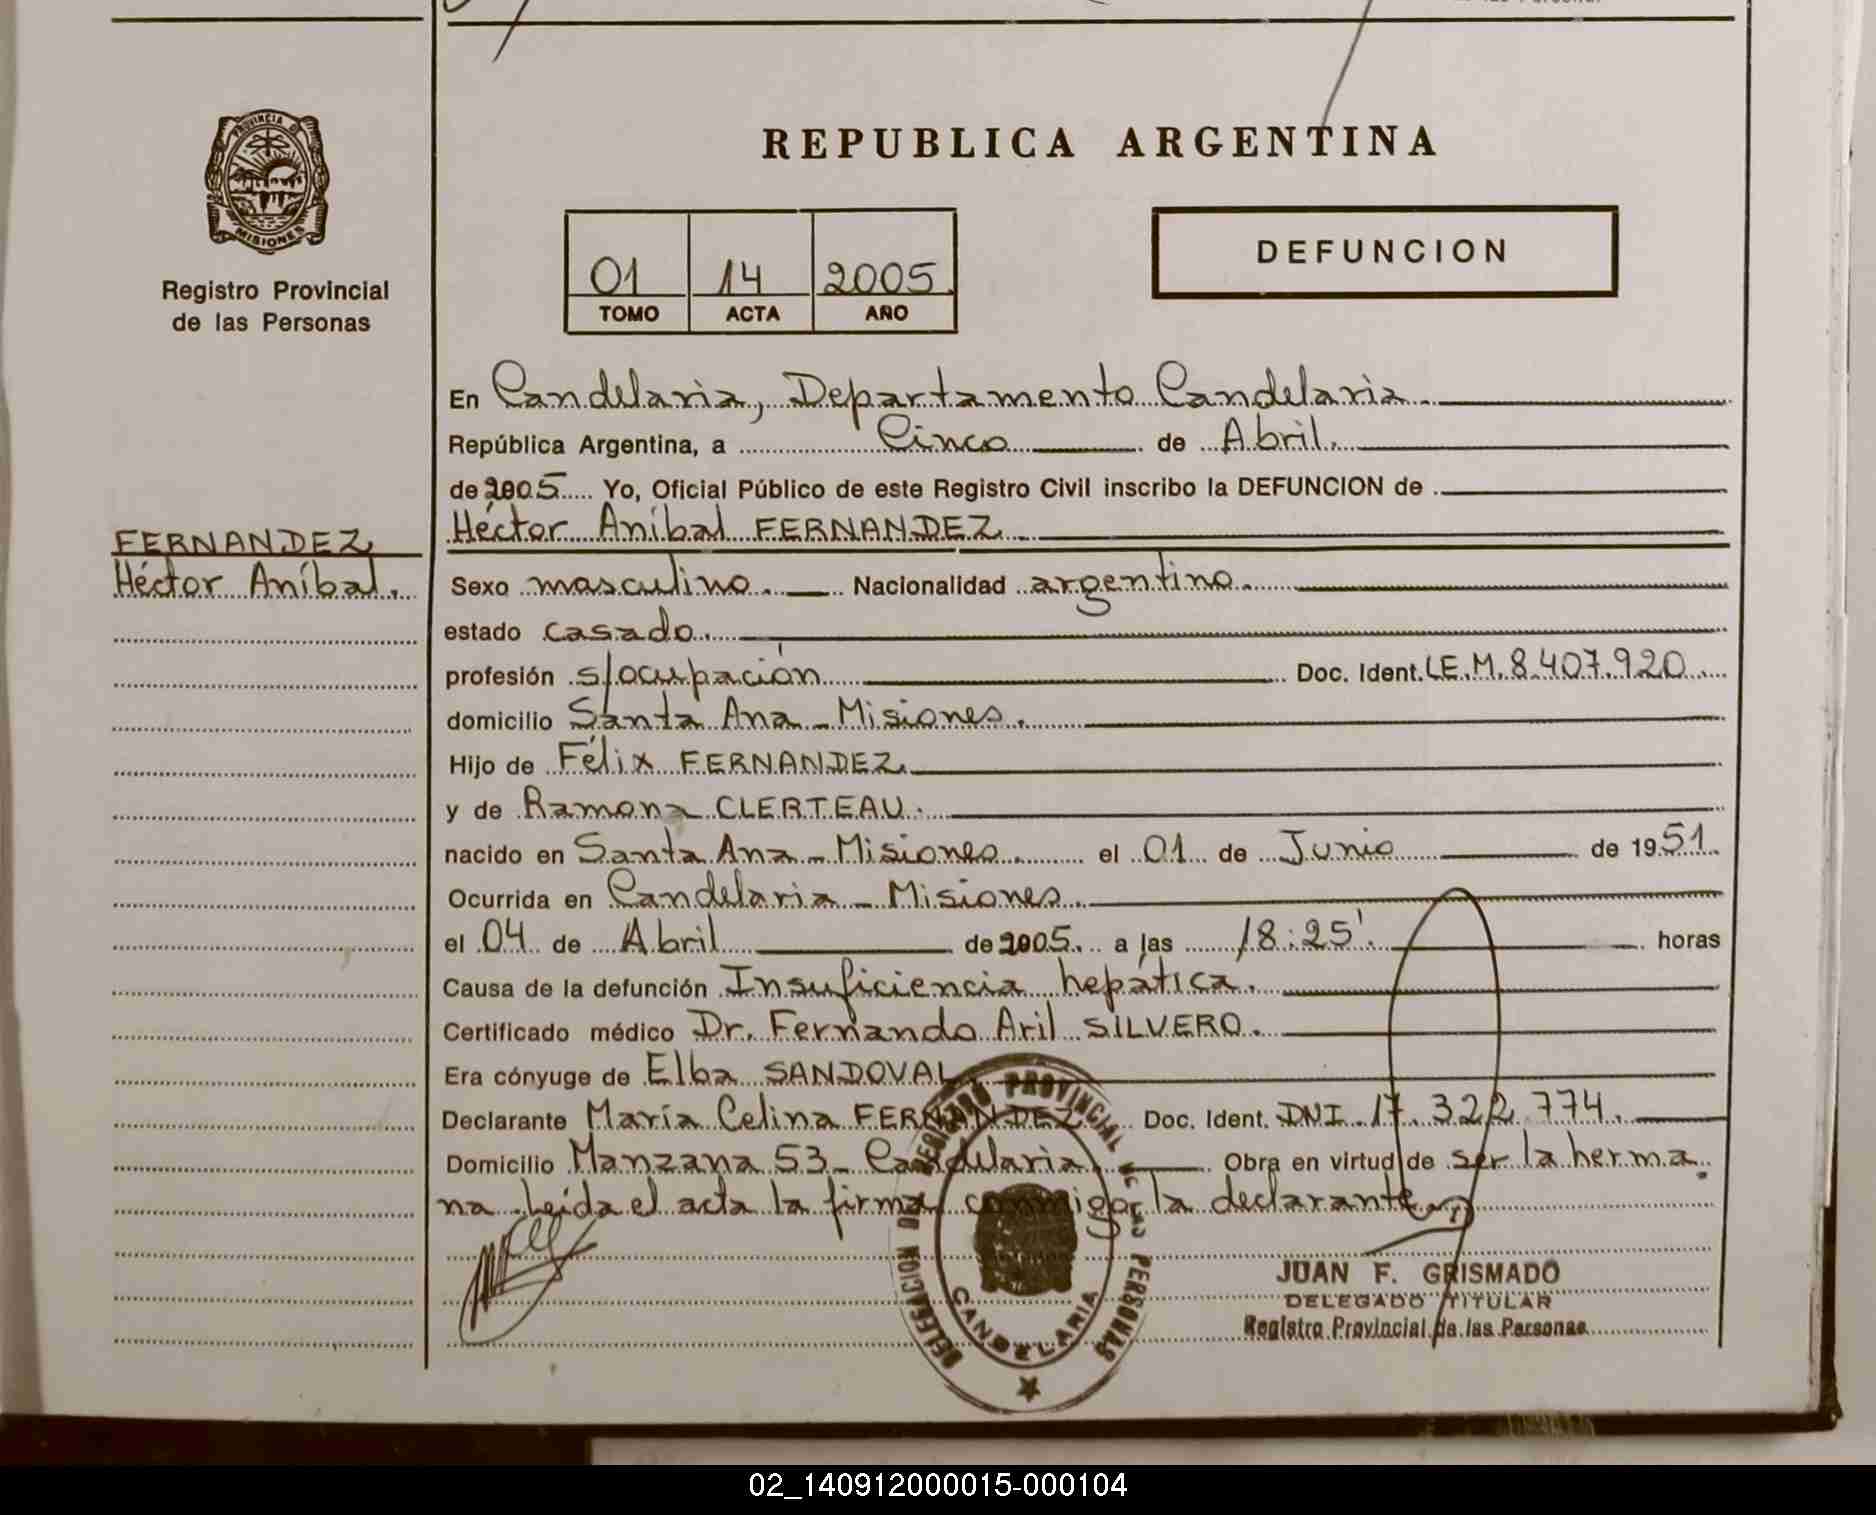 PROVINCIA DE
MISIONES
Registro Provincial
de las Personas
FERNANDEZ
Héctor Aníbal.
REPUBLICA ARGENTINA
01 14 2005
TOMO ACTA AÑO
DEFUNCION
En Candelaria, Departamento Candelaria
República Argentina, a Cinco de Abril.
de 2005 Yo, Oficial Público de este Registro Civil inscribo la DEFUNCION de
Héctor Aníbal FERNANDEZ
Sexo masculino. Nacionalidad argentino.
estado casado.
profesión s/ocupación Doc. Ident. L.E.M. 8.407.920
domicilio Santa Ana - Misiones.
Hijo de Félix FERNANDEZ
y de Ramona CLERTEAU.
nacido en Santa Ana - Misiones el 01 de Junio de 1951
Ocurrida en Candelaria - Misiones
el 04 de Abril de 2005. a las 18:25' horas
Causa de la defunción Insuficiencia hepática.
Certificado médico Dr. Fernando Aril SILVERO.
Era cónyuge de Elba SANDOVAL
Declarante María Celina FERNANDEZ Doc. Ident. DNI. 17.322.774.
Domicilio Manzana 53 - Candelaria. Obra en virtud de ser la herma
na. Leída el acta la firma conmigo la declarante
JUAN F. GRISMADO
DELEGADO TITULAR
Registro Provincial de las Personas
REGISTRO PROVINCIAL DE LAS PERSONAS
DELEGACION
CANDELARIA
02_140912000015-000104